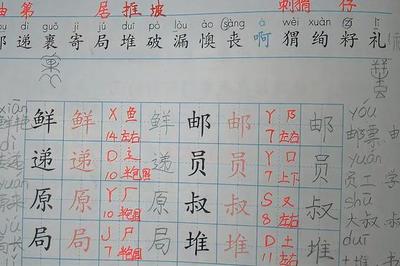 由 第 居 推 坡 刺猬 仔
u di guǒ jì jú duī pò lòu ào sàng à wèi xuàn zǐ lǐ
邮 递 裹 寄 局 堆 破 漏 懊 丧 啊 猬 绚 籽 礼
鲜 鲜 X 鱼 14 左右 鲜 邮 邮 Y 阝 7 左右 邮 yóu 邮票
递 递 D 辶 10 半包围 递 员 员 Y 口 7 上下 员 yuán 员工
原 原 Y 厂 10 半包围 原 叔 叔 S 又 8 左右 叔 shū 大叔
局 局 J 尸 7 局 堆 堆 D 土 11 左右 堆 duī